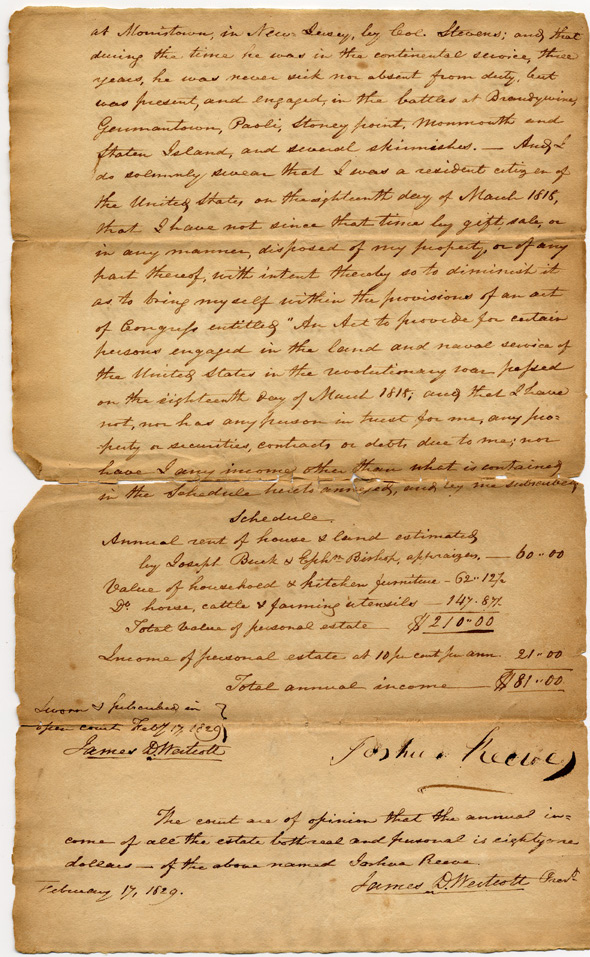 at Morristown, in New Jersey, by Col. Stevens; and that
during the time he was in the continental service, three
years, he was never sick nor absent from duty, but
was present, and engaged, in the battles at Brandywine,
Germantown, Paoli, Stoney point, Monmouth and
Staten Island, and several skirmishes. — And I
do solemnly swear that I was a resident citizen of
the United States, on the eighteenth day of March 1818,
that I have not since that time by gift, sale, or
in any manner, disposed of my property, or of any
part thereof, with intent thereby so to diminish it
as to bring myself within the provisions of an act
of Congress entitled "An Act to provide for certain
persons engaged in the land and naval service of
the United States in the revolutionary war passed
on the eighteenth day of March 1818; and that I have
not, nor has any person in trust for me, any pro=
perty or securities, contracts or debts, due to me; nor
have I any income other than what is contained
in the Schedule hereto annexed, and by me subscribed
Schedule.
Annual rent of house & land estimated
by Joseph Buck & Ephm Bishop, appraizers, — 60..00
Value of household & kitchen furniture - 62..12½
Do house, cattle & farming utensils — 147.87½
Total value of personal estate $210..00
Income of personal estate at 10 pr cent pr ann. 21..00
Total annual income — $81..00
Sworn & subscribed in
open court Feby 17, 1829
James D. Westcott
Joshua Reeve
The court are of opinion that the annual in=
come of all the estate both real and personal is eighty one
dollars — of the above named Joshua Reeve.
February 17, 1829.
James D. Westcott Presdt